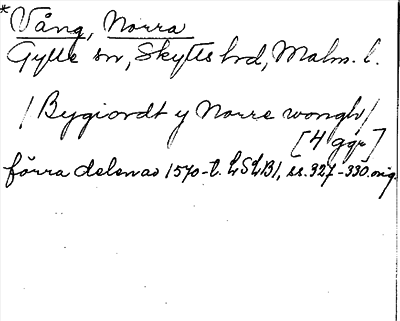 * Vång, Norra
Gylle sn, Skytts hrd, Malm. l.
/ Bygiordt y Norre wongh /
[4 ggr]
förra delen av 1570-t. LSLB1, ss. 327-330. orig.